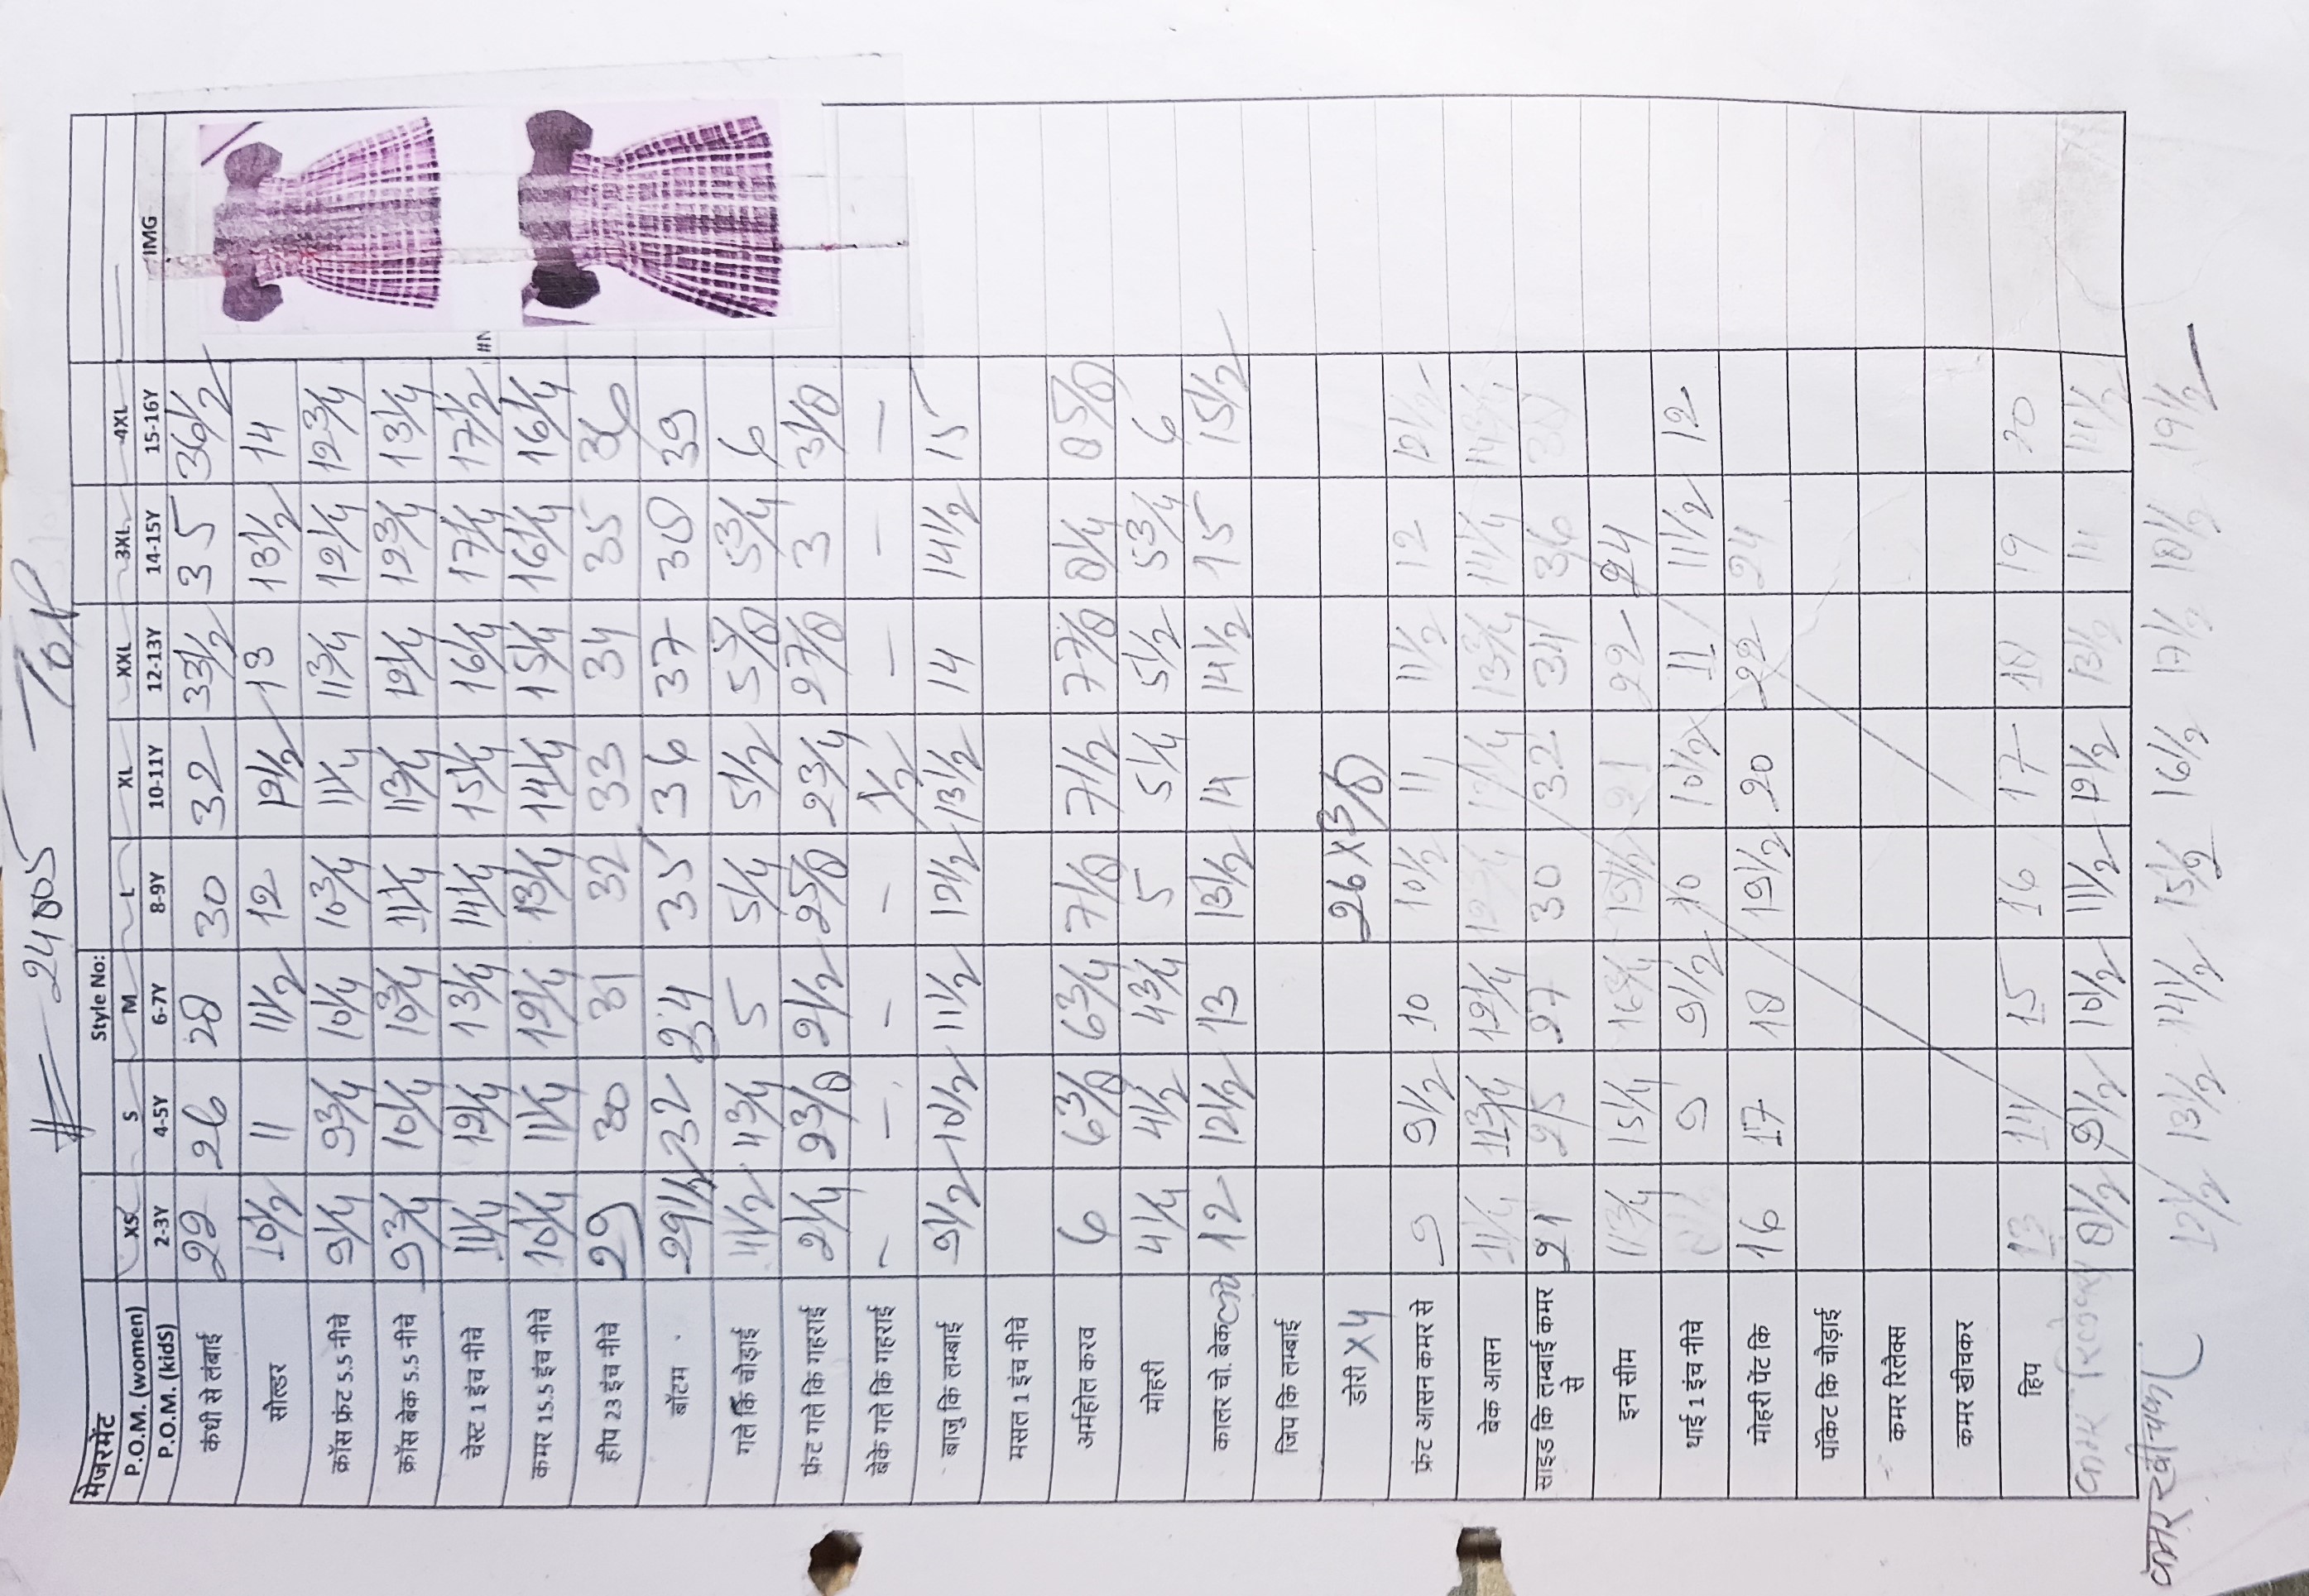 # 24005 TOP
मेजरमेंट Style No:
P.O.M. (women) XS S M L XL XXL 3XL 4XL
P.O.M. (kidS) 2-3Y 4-5Y 6-7Y 8-9Y 10-11Y 12-13Y 14-15Y 15-16Y IMG
कंधी से लंबाई 22 26 28 30 32 33 1/2 35 36 1/2
सोल्डर 10 1/2 11 11 1/2 12 12 1/2 13 13 1/2 14
क्रॉस फ्रंट 5.5 नीचे 9 1/4 9 3/4 10 1/4 10 3/4 11 1/4 11 3/4 12 1/4 12 3/4
क्रॉस बेक 5.5 नीचे 9 3/4 10 1/4 10 3/4 11 1/4 11 3/4 12 1/4 12 3/4 13 1/4
चेस्ट 1 इंच नीचे 11 1/4 12 1/4 13 1/4 14 1/4 15 1/4 16 1/4 17 1/4 17 1/2
कमर 15.5 इंच नीचे 10 1/4 11 1/4 12 1/4 13 1/4 14 1/4 15 1/4 16 1/4 16 1/4
#N
हीप 23 इंच नीचे 29 30 31 32 33 34 35 36
बॉटम 29 1/2 32 34 35 36 37 38 39
गले कि चोड़ाई 4 1/2 4 3/4 5 5 1/4 5 1/2 5 5/8 5 3/4 6
फ्रंट गले कि गहराई 2 1/4 2 3/8 2 1/2 2 5/8 2 3/4 2 7/8 3 3 1/8
बेके गले कि गहराई - - - - 1/2 - - -
बाजु कि लम्बाई 9 1/2 10 1/2 11 1/2 12 1/2 13 1/2 14 14 1/2 15
मसल 1 इंच नीचे
अर्महोल करव 6 6 3/8 6 3/4 7 1/8 7 1/2 7 7/8 8 1/4 8 5/8
मोहरी 4 1/4 4 1/2 4 3/4 5 5 1/4 5 1/2 5 3/4 6
कालर चो. बेक 12 12 1/2 13 13 1/2 14 14 1/2 15 15 1/2
जिप कि लम्बाई
डोरी X4 26 X 3/8
फ्रंट आसन कमर से 9 9 1/2 10 10 1/2 11 11 1/2 12 12 1/2
बेक आसन 11 1/4 11 3/4 12 1/4 12 3/4 13 3/4 14 1/4
साइड कि लम्बाई कमर से 21 25 27 30 32 34 36 38
इन सीम 11 3/4 15 1/4 22 24
थाई 1 इंच नीचे 9 9 1/2 10 10 1/2 11 11 1/2 12
मोहरी पेंट कि 16 17 18 19 1/2 20 22 24
पॉकेट कि चौड़ाई
कमर रिलैक्स
कमर खीचकर
हिप 13 14 15 16 17 18 19 20
कमर रिलेक्स 8 1/2 9 1/2 10 1/2 11 1/2 12 1/2 13 1/2 14 14 1/2
कमर खीचकर 12 1/2 13 1/2 14 1/2 15 1/2 16 1/2 17 1/2 18 1/2 19 1/2